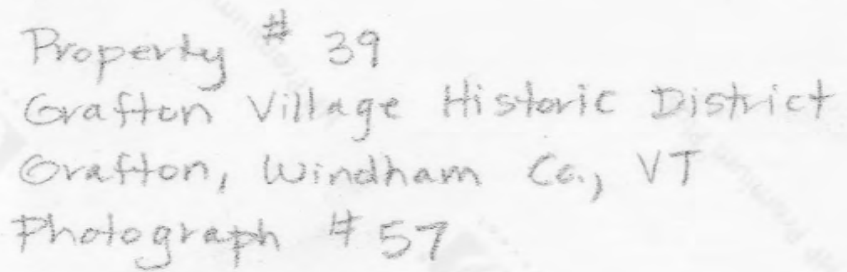 Property # 39
Grafton Village Historic District
Grafton, Windham Co., VT
Photograph # 57